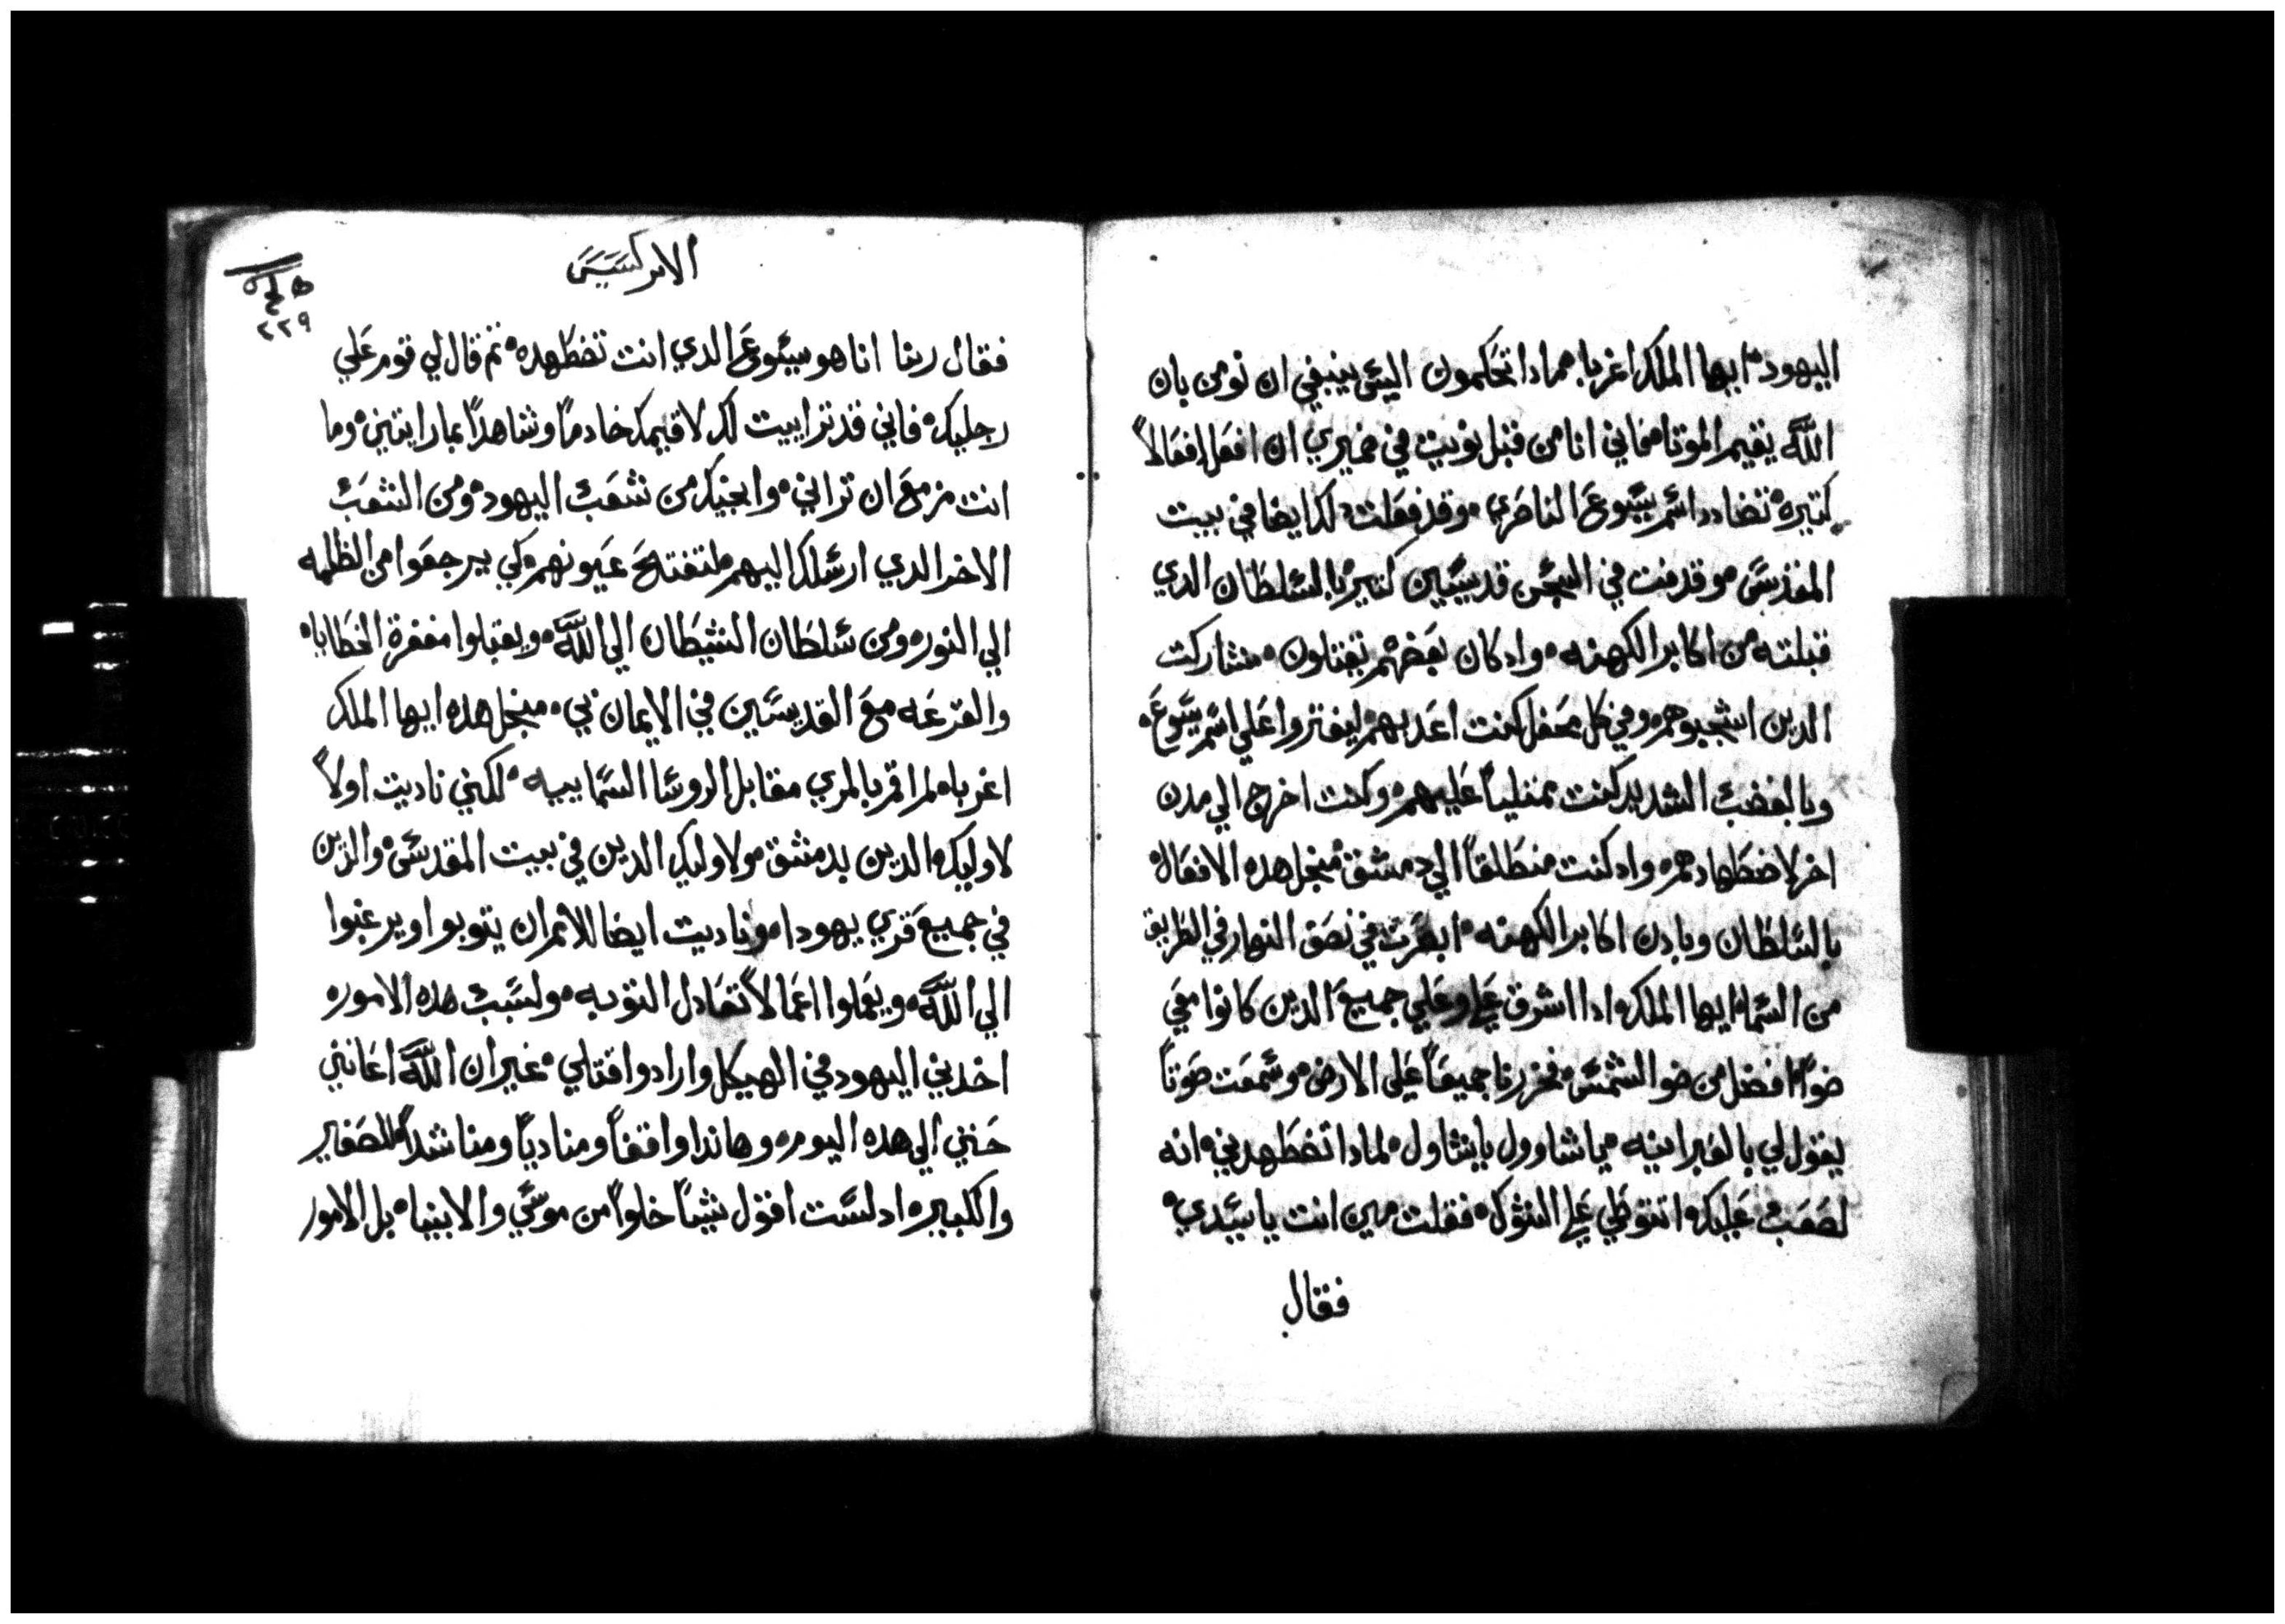 اليهود ايها الملك اغرباه مادا تحكمون اليس ينبغي ان نومن بان
الله يقيم الموتا فاني انا من قبل نويت في ضميري ان افعل افعالاً
كتيره تضادد اسم يسوع الناصري وقد فعلت دلك ايضا في بيت
المقدس وقدفت في السجن قديسين كتيره بالسلطان الدي
قبلته من اكابر الكهنه وادكان بعضهم يقتلون شاركت
الدين اشجبوهم وفي كل محفل كنت اعدبهم ليفتروا علي اسم يسوع
وبالغضب الشديد كنت ممتلياً عليهم وكنت اخرج الي مدن
اخر لاضطهادهم واد كنت منطلقاً الي دمشق منجل هده الافعال
بالسلطان وبادن اكابر الكهنه ابصرت في نصف النهار في الطريق
من السما ايها الملك ادا اشرق علي وعلي جميع الدين كانوا معي
ضواً افضل من ضو الشمس فخررنا جميعاً علي الارض وسمعت صوتاً
يقول لي بالعبرانيه يا شاوول يا شاول لمادا تضطهدني انه
لصعب عليك انتوطي علي الشوك فقلت مين انت يا سيدي
فقال
الابركسيس
٢٢٩
فقال ربنا انا هو يسوع الدي انت تضطهده تم قال لي قوم علي
رجليك فاني قد ترايت لك لاقيمك خادماً وشاهداً بما رايتني وما
انت مزمع ان تراني وانجيك من شعب اليهود ومن الشعب
الاخر الدي ارسلك اليهم لتفتح عيونهم كي يرجعوا من الظلمه
الي النور ومن سلطان الشيطان الي الله ويقبلوا مغفرة الخطايا
والقرعه مع القديسين في الايمان بي منجل هده ايها الملك
اغرباه لم اقر بالمري مقابل الروسا السماييه لكني ناديت اولاً
لاوليك الدين بدمشق ولاوليك الدين في بيت المقدس والدين
في جميع قري يهودا وناديت ايضا للامم ان يتوبوا ويرغبوا
الي الله ويعملوا اعمالاً تعادل التوبه ولسبب هده الامور
اخدني اليهود في الهيكل وارادوا قتلي غير ان الله اعانني
حتي الي هده اليوم وهاندا واقفاً ومنادياً ومناشداً للصغير
والكبير اد لست اقول شياً خلواً من موسي والانبيا بل الامور